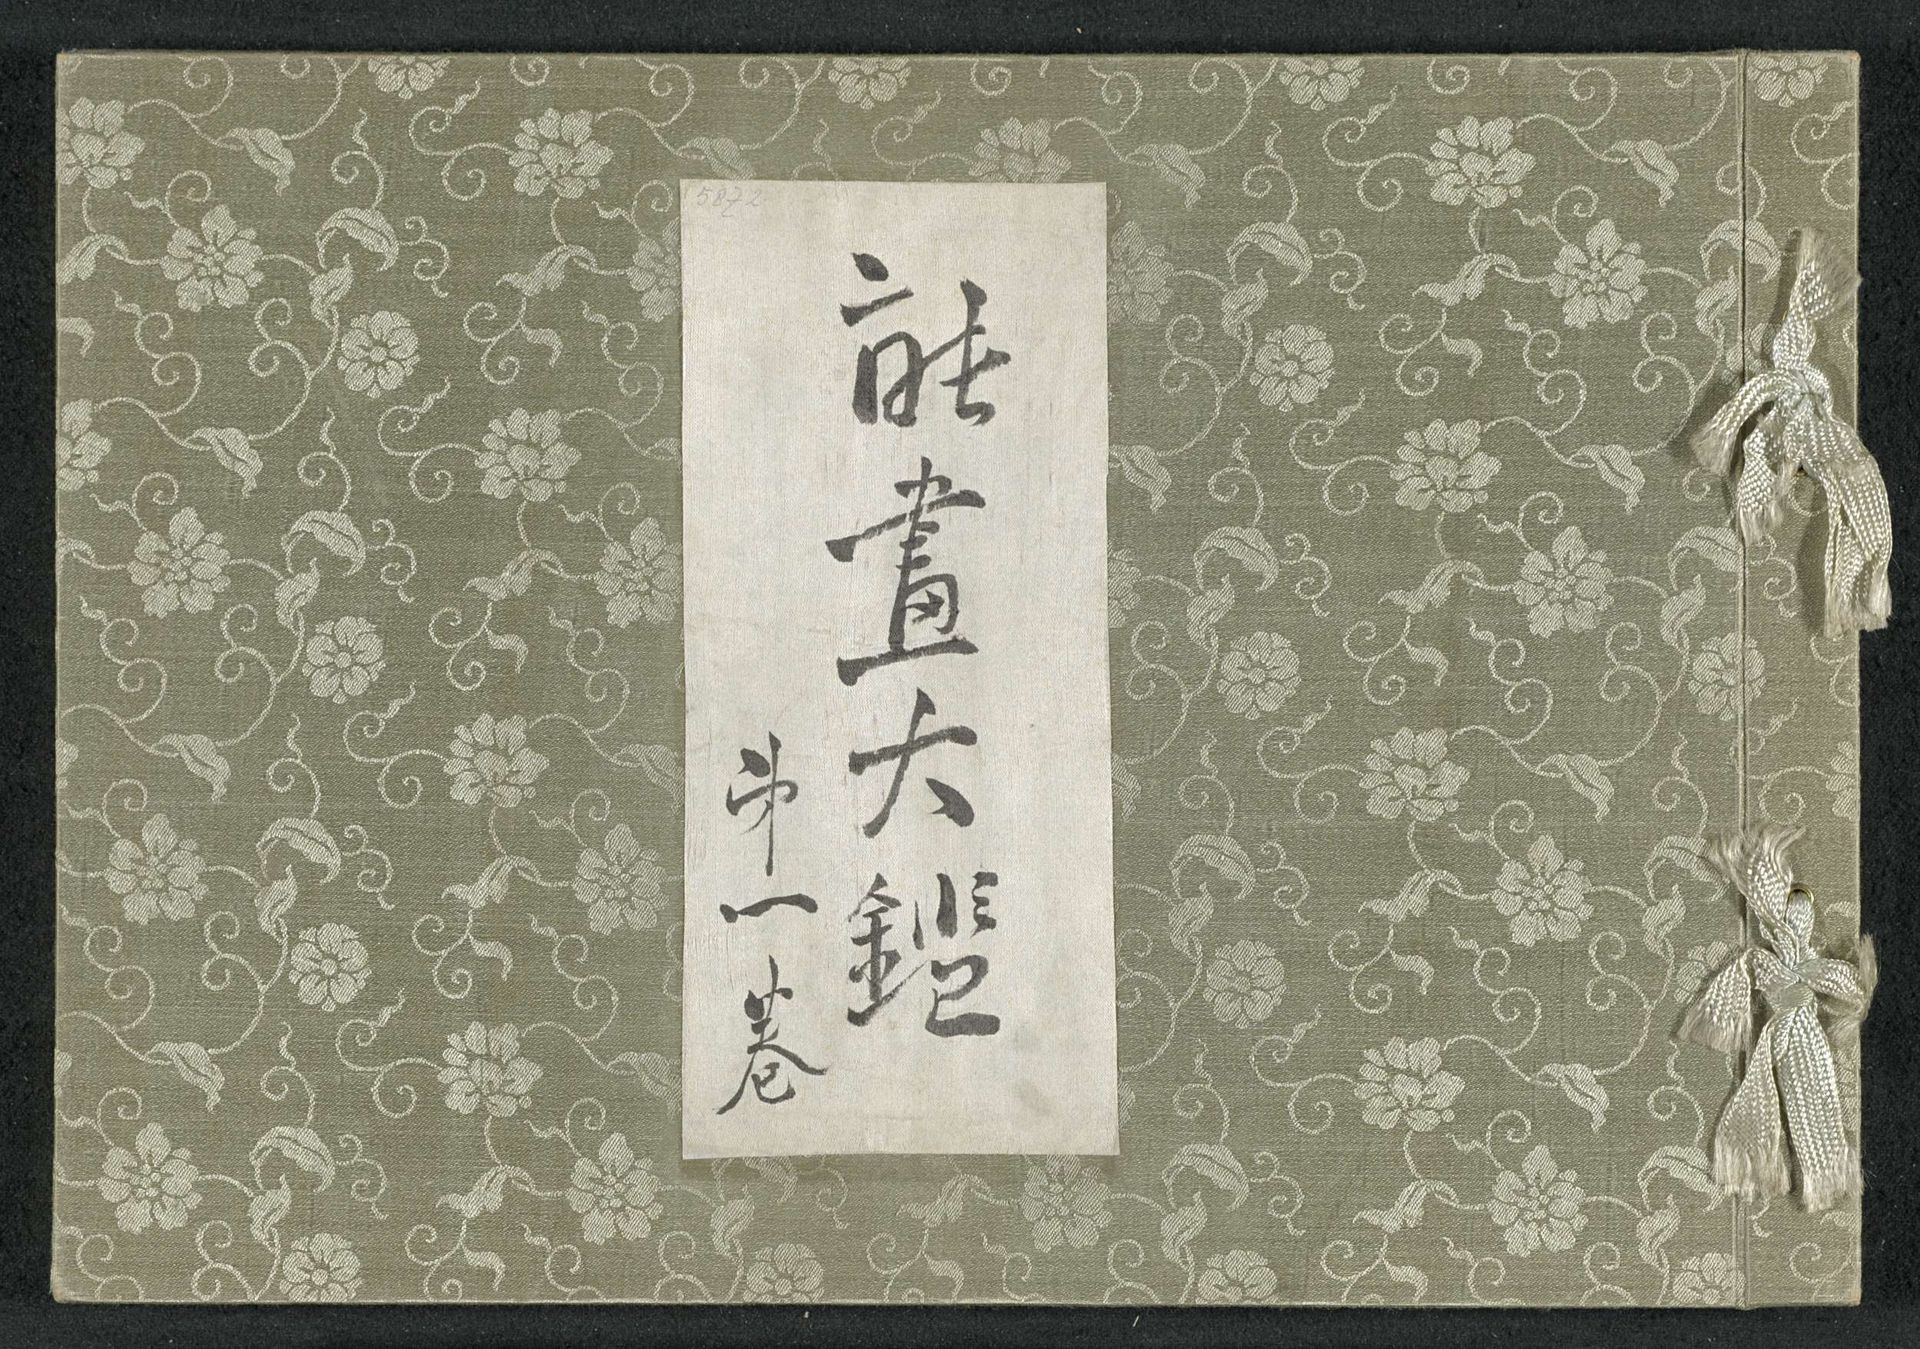 能畫大鑑
第一卷
5872